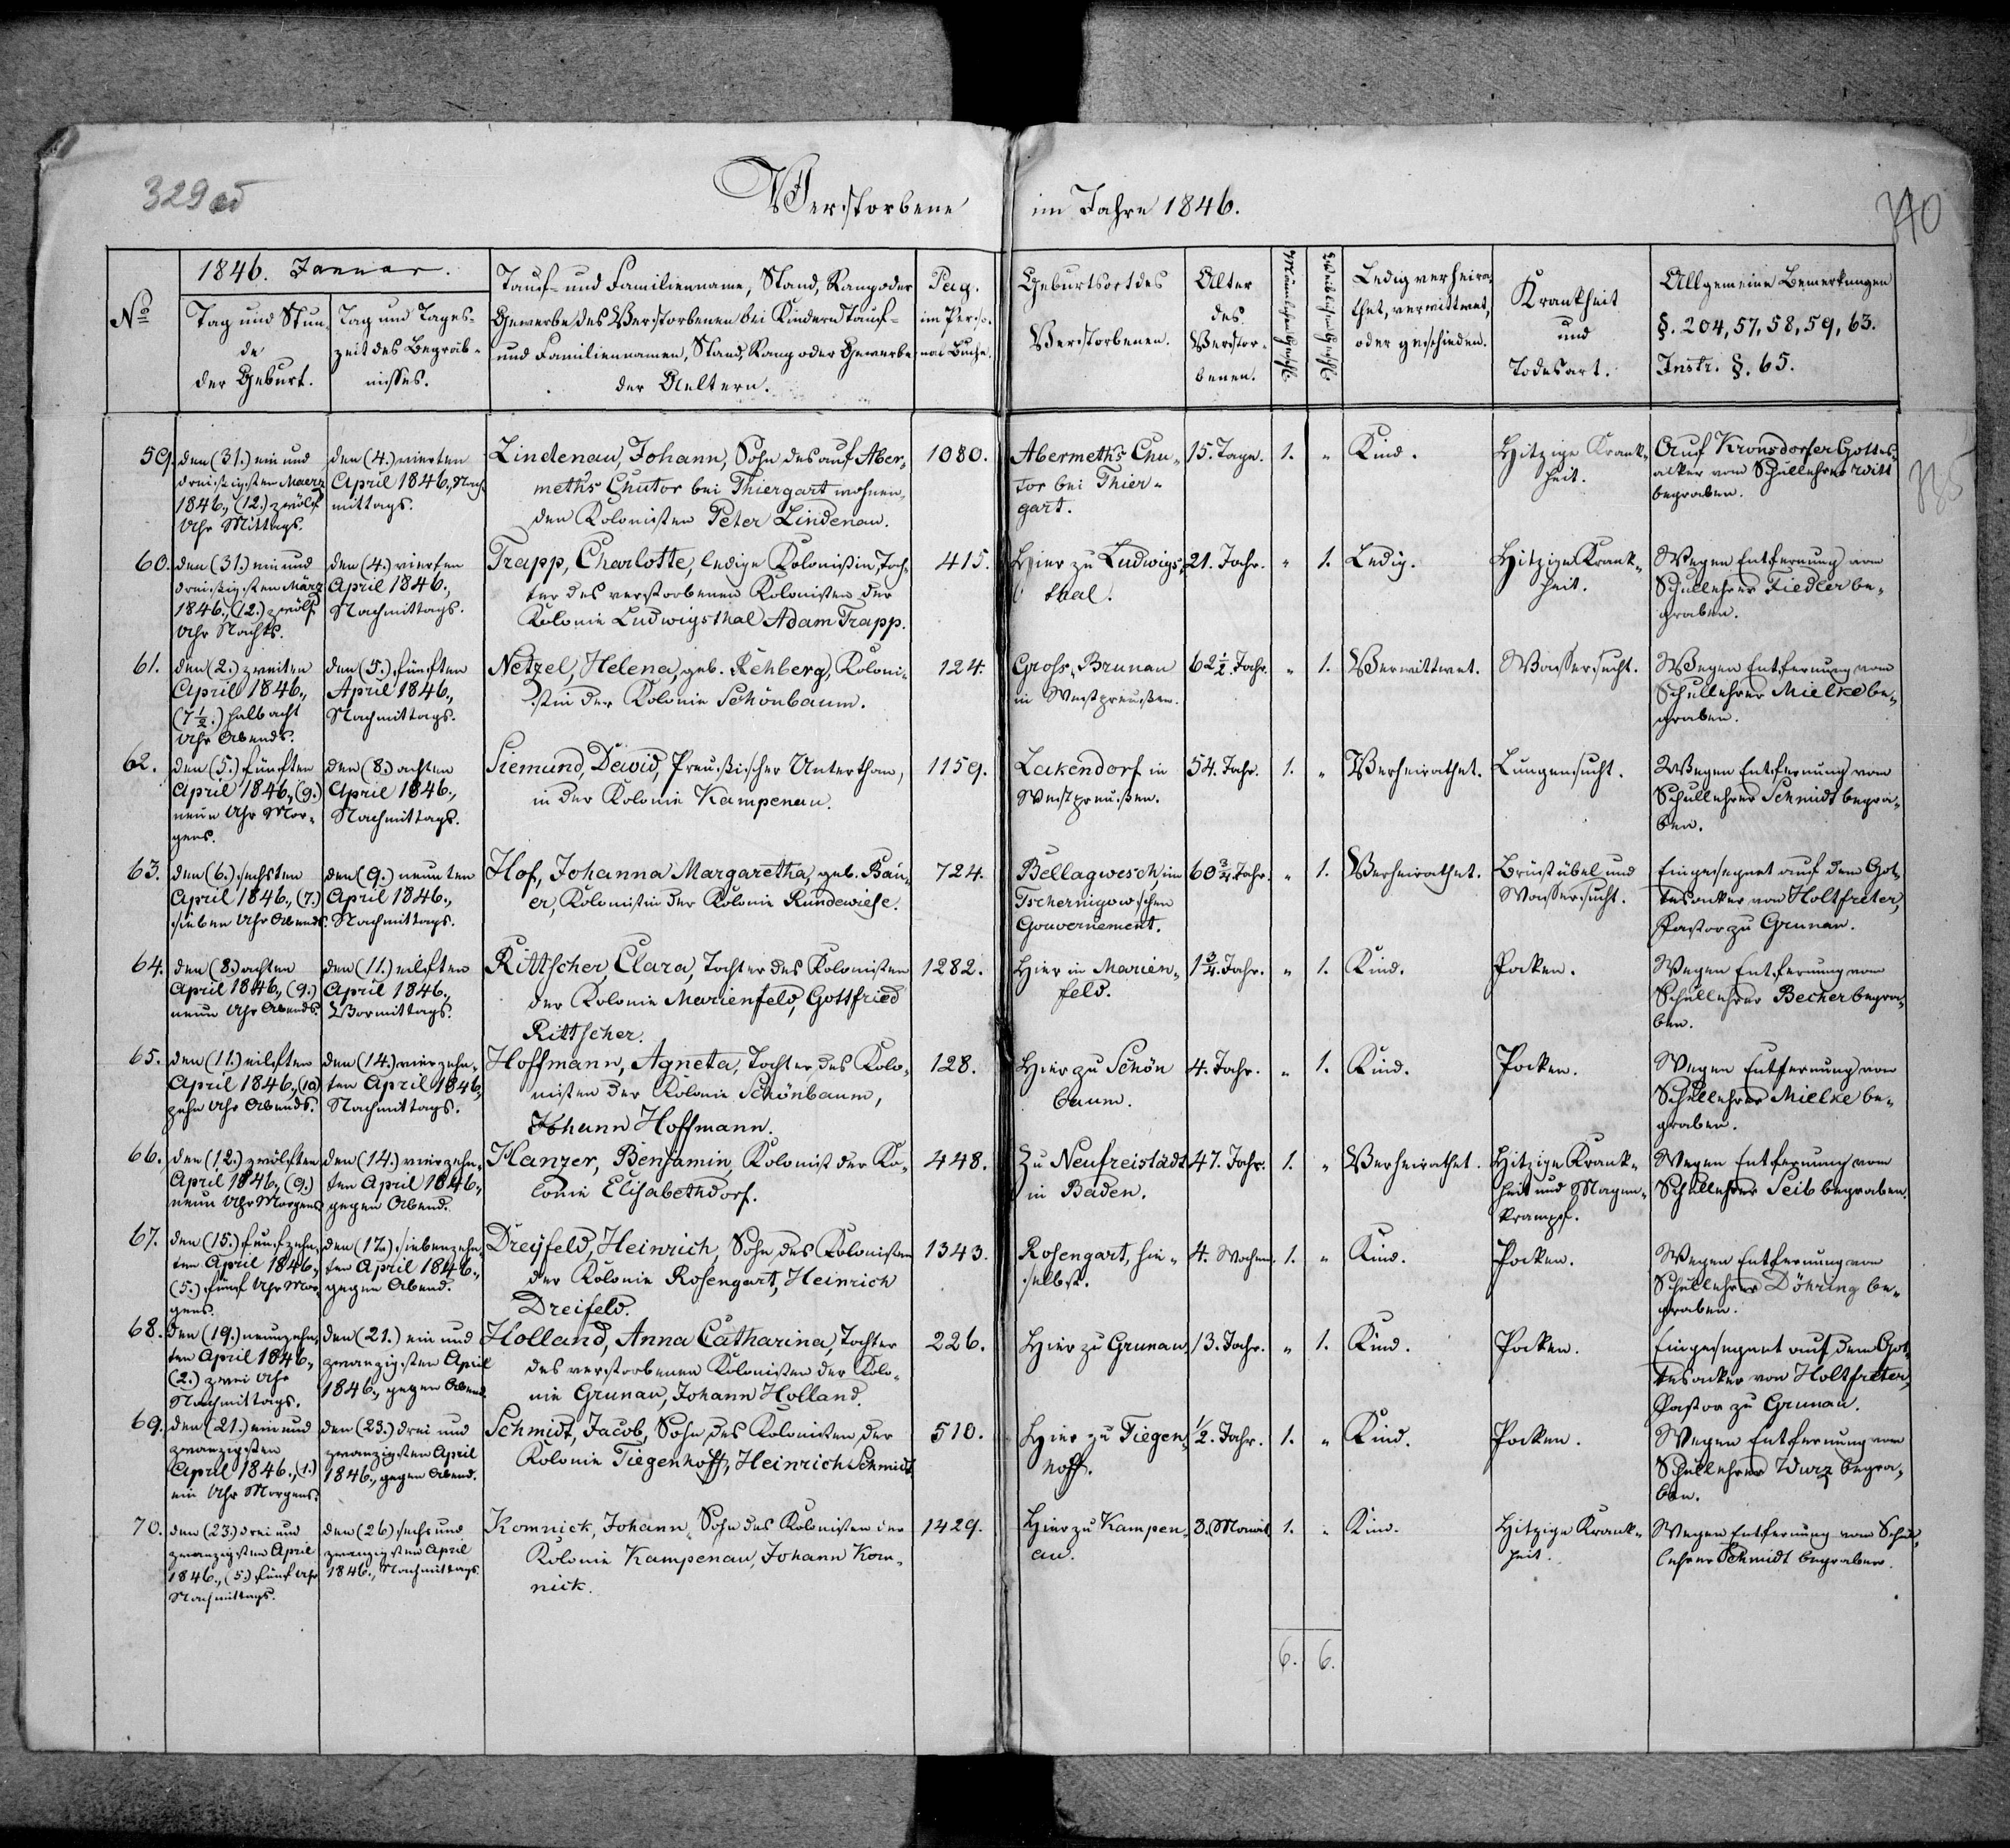 329 об
Verstorbene im Jahre 1846.
1846. Januar.
No
Tag und Stun
de
der Geburt.
Tag und Tages-
zeit des Begräb-
nisses.
Tauf- und Familienname, Stand, Rang oder
Gewerbe des Verstorbenen bei Kindern Tauf-
und Familiennamen, Stand, Rang oder Gewerbe
der Aeltern.
Pag.
im Perso-
nal Buche.
Geburtsort des
Verstorbenen.
Alter
des
Verstor-
benen.
Männlichen Geschl.
Weiblichen Geschl.
Ledig verheira-
thet, verwittwet,
oder geschieden.
Krankheit
und
Todesart.
Allgemeine Bemerkungen
§. 204, 57, 58, 59, 63.
Instr. §. 65.
59.
den (31.) ein und
dreißigsten Maerz
1846., (12.) zwölf
Uhr Mittags.
den (4.) vierten
April 1846., Nach-
mittags.
Lindenau, Johann, Sohn des auf Aber-
meths Chutor bei Thiergart wohnen-
den Kolonisten Peter Lindenau.
1080.
Abermeths Chu-
tor bei Thier-
gart.
15. Tage.
1.
"
Kind.
Hitzige Krank-
heit.
Auf Kronsdorfer Gottes-
acker vom Schullehrer Witt
begraben.
60.
den (31.) ein und
dreißigsten März
1846., (12.) zwölf
Uhr Nachts.
den (4.) vierten
April 1846.,
Nachmittags.
Trapp, Charlotte, ledige Kolonistin, Toch-
ter des verstorbenen Kolonisten der
Kolonie Ludwigsthal Adam Trapp.
415.
Hier zu Ludwigs-
thal.
21. Jahr.
"
1.
Ledig.
Hitzige Krank-
heit.
Wegen Entfernung vom
Schullehrer Fiedler be-
graben.
61.
den (2.) zweiten
April 1846.,
(7½.) halb acht
Uhr Abends.
den (5.) fünften
April 1846.,
Nachmittags.
Netzel, Helena, geb. Rehberg, Koloni-
stin der Kolonie Schönbaum.
124.
Gross-Brunau
in Westpreußen.
62½. Jahr.
"
1.
Verwittwet.
Wassersucht.
Wegen Entfernung vom
Schullehrer Mielke be-
graben.
62.
den (5.) fünften
April 1846., (9.)
neun Uhr Mor-
gens.
den (8.) achten
April 1846.,
Nachmittags.
Siemund, David, Preußischer Unterthan,
in der Kolonie Kampenau.
1159.
Lakendorf in
Westpreußen.
54. Jahr.
1.
"
Verheirathet.
Lungensucht.
Wegen Entfernung vom
Schullehrer Schmidt begra-
ben.
63.
den (6.) sechsten
April 1846., (7.)
sieben Uhr Abends.
den (9.) neunten
April 1846.,
Nachmittags.
Hof, Johanna Margaretha, geb. Bau-
er, Kolonistin der Kolonie Rundewiese.
724.
Bellagwesch, im
Tschernigowschen
Gouvernement.
60¾. Jahr.
"
1.
Verheirathet.
Brustübel und
Wassersucht.
Eingesegnet auf dem Got-
tesacker von Holtfreter,
Pastor zu Grunau.
64.
den (8.) achten
April 1846., (9.)
neun Uhr Abends.
den (11.) eilften
April 1846.,
Vormittags.
Rittscher, Clara, Tochter des Kolonisten
der Kolonie Marienfeld, Gottfried
Rittscher.
1282.
Hier in Marien-
feld.
1¾. Jahr.
"
1.
Kind.
Pocken.
Wegen Entfernung vom
Schullehrer Becher begra-
ben.
65.
den (11.) eilften
April 1846., (10)
zehn Uhr Abends.
den (14.) vierzehn-
ten April 1846.,
Nachmittags.
Hoffmann, Agneta, Tochter des Kolo-
nisten der Kolonie Schönbaum,
Johann Hoffmann.
128.
Hier zu Schön
baum.
4. Jahr.
"
1.
Kind.
Pocken.
Wegen Entfernung vom
Schullehrer Mielke be-
graben.
66.
den (12.) zwölften
April 1846., (9.)
neun Uhr Morgens
den (14.) vierzehn-
ten April 1846.,
gegen Abend.
Kanzer, Benjamin, Kolonist der Ko-
lonie Elisabethdorf.
448.
Zu Neufreistädt
in Baden.
47. Jahr.
1.
"
Verheirathet.
Hitzige Krank-
heit und Magen-
krampf.
Wegen Entfernung vom
Schullehrer Seib begraben.
67.
den (15.) fünfzehn-
ten April 1846.,
(5.) fünf Uhr Mor-
gens.
den (17.) siebenzehn-
ten April 1846.,
gegen Abend.
Dreyfeld, Heinrich, Sohn des Kolonisten
der Kolonie Rosengart, Heinrich
Dreifeld.
1343.
Rosengart, hie-
selbst.
4. Wochen.
1.
"
Kind.
Pocken.
Wegen Entfernung vom
Schullehrer Döhring be-
graben.
68.
den (19.) neunzehn-
ten April 1846.,
(2.) zwei Uhr
Nachmittags.
den (21.) ein und
zwanzigsten April
1846., gegen Abend.
Holland, Anna Catharina, Tochter
des verstorbenen Kolonisten der Kolo-
nie Grunau, Johann Holland.
226.
Hier zu Grunau.
13. Jahr.
"
1.
Kind.
Pocken.
Eingesegnet auf dem Got-
tesacker von Holtfreter,
Pastor zu Grunau.
69.
den (21.) ein und
zwanzigsten
April 1846., (1.)
ein Uhr Morgens.
den (23.) drei und
zwanzigsten April
1846., gegen Abend.
Schmidt, Jacob, Sohn des Kolonisten der
Kolonie Tiegenhoff, Heinrich Schmidt
510.
Hier zu Tiegen-
hoff.
½. Jahr.
1.
"
Kind.
Pocken.
Wegen Entfernung vom
Schullehrer Wurz begra-
ben.
70.
den (23.) drei und
zwanzigsten April
1846., (5.) fünf Uhr
Nachmittags.
den (26) sechs und
zwanzigsten April
1846., Nachmittags.
Komnick, Johann, Sohn des Kolonisten der
Kolonie Kampenau, Johann Kom-
nick.
1429.
Hier zu Kampen-
au.
3. Monat
1.
"
Kind.
Hitzige Krank-
heit.
Wegen Entfernung vom Schul-
lehrer Schmidt begraben.
6. 6.